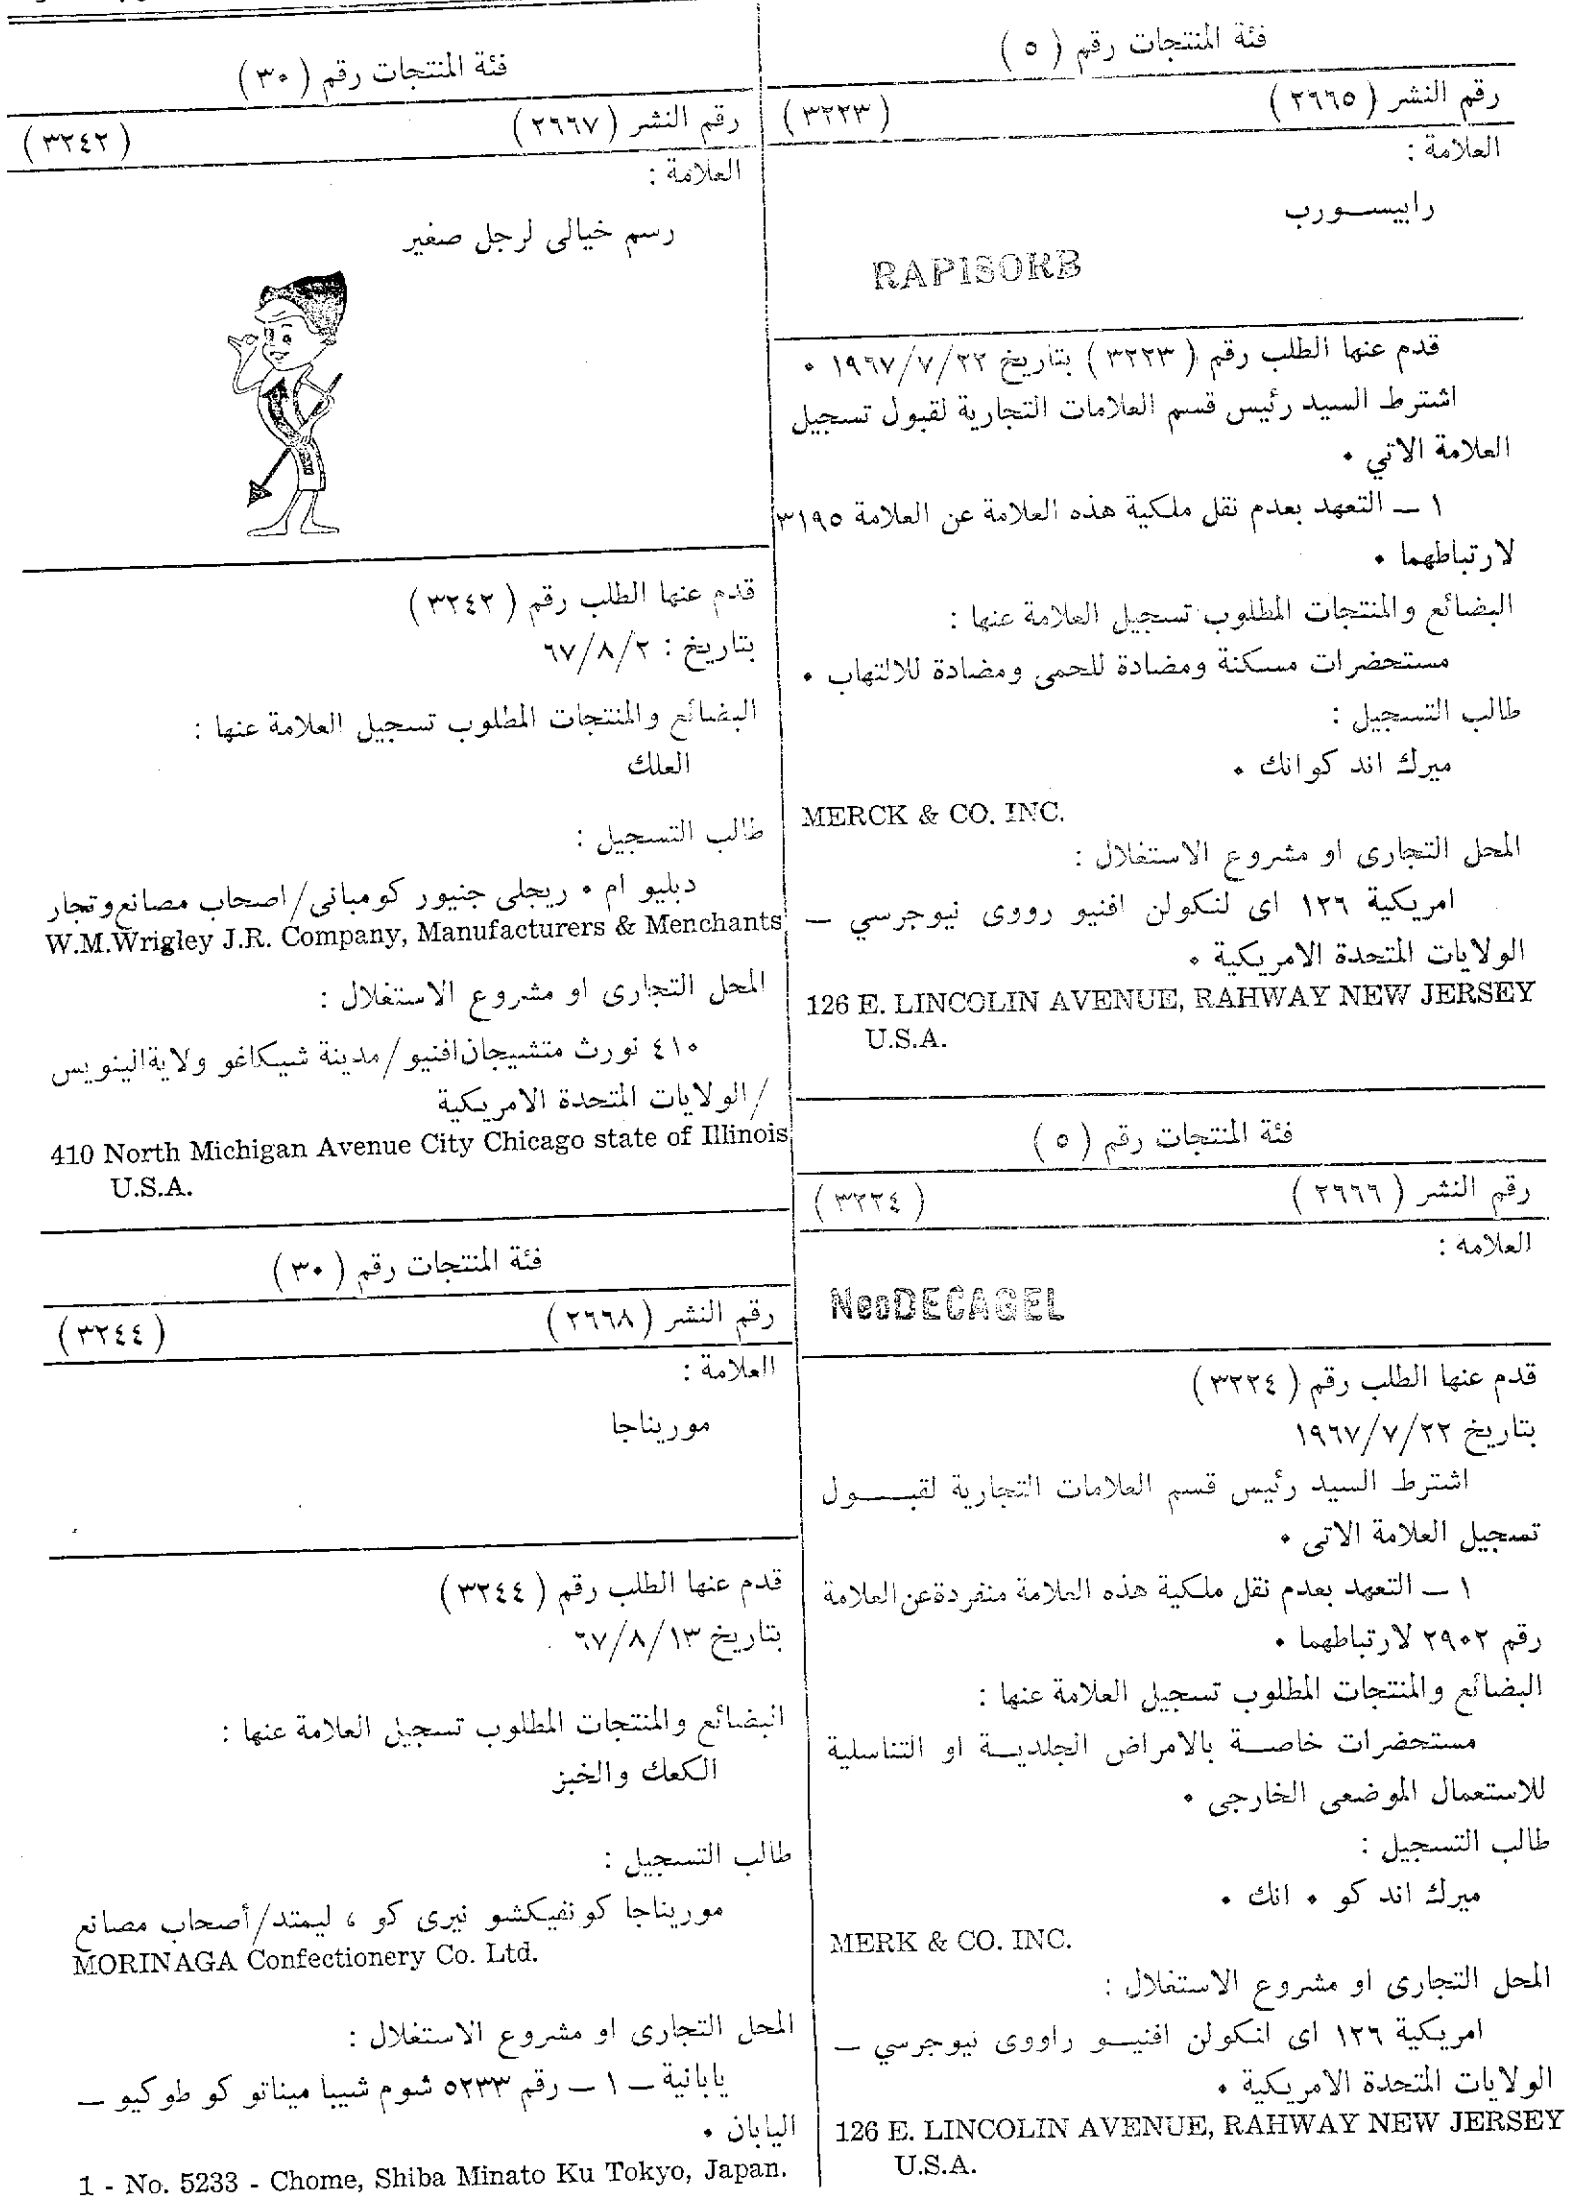 فئة المنتجات رقم ( ٥ )
رقم النشر ( ٢٦٦٥ ) ( ٣٢٢٣ )
العلامة :
رابيســورب
RAPISORB
قدم عنها الطلب رقم ( ٣٢٢٣ ) بتاريخ ١٩٦٧/٧/٢٢ ٠
اشترط السيد رئيس قسم العلامات التجارية لقبول تسجيل
العلامة الاتي ٠
١ ــ التعهد بعدم نقل ملكية هذه العلامة عن العلامة ٣١٩٥
لارتباطهما ٠
البضائع والمنتجات المطلوب تسجيل العلامة عنها :
مستحضرات مسكنة ومضادة للحمى ومضادة للالتهاب ٠
طالب التسجيل :
ميرك اند كوانك ٠
MERCK & CO. INC.
المحل التجارى او مشروع الاستغلال :
امريكية ١٢٦ اى لنكولن افنيو رووى نيوجرسي ــ
الولايات المتحدة الامريكية ٠
126 E. LINCOLIN AVENUE, RAHWAY NEW JERSEY
U.S.A.
فئة المنتجات رقم ( ٥ )
رقم النشر ( ٢٦٦٦ ) ( ٣٢٢٤ )
العلامة :
NeoDECAGEL
قدم عنها الطلب رقم ( ٣٢٢٤ )
بتاريخ ١٩٦٧/٧/٢٢
اشترط السيد رئيس قسم العلامات التجارية لقبـــول
تسجيل العلامة الاتى ٠
١ ــ التعهد بعدم نقل ملكية هذه العلامة منفردة عن العلامة
رقم ٢٩٠٢ لارتباطهما ٠
البضائع والمنتجات المطلوب تسجيل العلامة عنها :
مستحضرات خاصــة بالامراض الجلديــة او التناسلية
للاستعمال الموضعى الخارجى ٠
طالب التسجيل :
ميرك اند كو ٠ انك ٠
MERK & CO. INC.
المحل التجارى او مشروع الاستغلال :
امريكية ١٢٦ اى انكولن افنيــو راووى نيوجرسي ــ
الولايات المتحدة الامريكية ٠
126 E. LINCOLIN AVENUE, RAHWAY NEW JERSEY
U.S.A.
فئة المنتجات رقم ( ٣٠ )
رقم النشر ( ٢٦٦٧ ) ( ٣٢٤٢ )
العلامة :
رسم خيالى لرجل صغير
قدم عنها الطلب رقم ( ٣٢٤٢ )
بتاريخ : ٦٧/٨/٢
البضائع والمنتجات المطلوب تسجيل العلامة عنها :
العلك
طالب التسجيل :
دبليو ام ٠ ريجلى جنيور كومبانى/اصحاب مصانع وتجار
W.M.Wrigley J.R. Company, Manufacturers & Menchants
المحل التجارى او مشروع الاستغلال :
٤١٠ نورث متشيجان افنيو/مدينة شيكاغو ولاية الينويس
/الولايات المتحدة الامريكية
410 North Michigan Avenue City Chicago state of Illinois
U.S.A.
فئة المنتجات رقم ( ٣٠ )
رقم النشر ( ٢٦٦٨ ) ( ٣٢٤٤ )
العلامة :
موريناجا
قدم عنها الطلب رقم ( ٣٢٤٤ )
بتاريخ ٦٧/٨/١٣
البضائع والمنتجات المطلوب تسجيل العلامة عنها :
الكعك والخبز
طالب التسجيل :
موريناجا كونفيكشو نيرى كو ، ليمتد/أصحاب مصانع
MORINAGA Confectionery Co. Ltd.
المحل التجارى او مشروع الاستغلال :
يابانية ــ ١ ــ رقم ٥٢٣٣ شوم شيبا ميناتو كو طوكيو ــ
اليابان ٠
1 - No. 5233 - Chome, Shiba Minato Ku Tokyo, Japan.